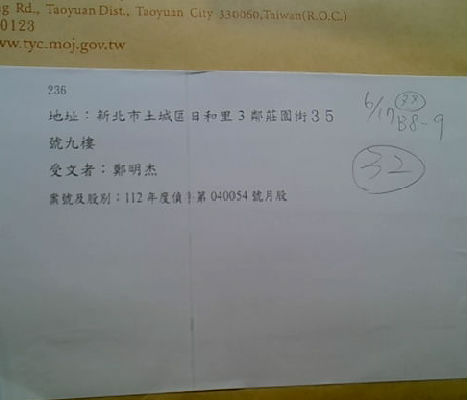 ng Rd., Taoyuan Dist., Taoyuan City 330060,Taiwan(R.O.C.)
0123
www.tyc.moj.gov.tw
236
地址：新北市土城區日和里3鄰莊園街35
號九樓
受文者：鄭明杰
案號及股別：112年度偵 第040054號月股
6/17
B8-9
32